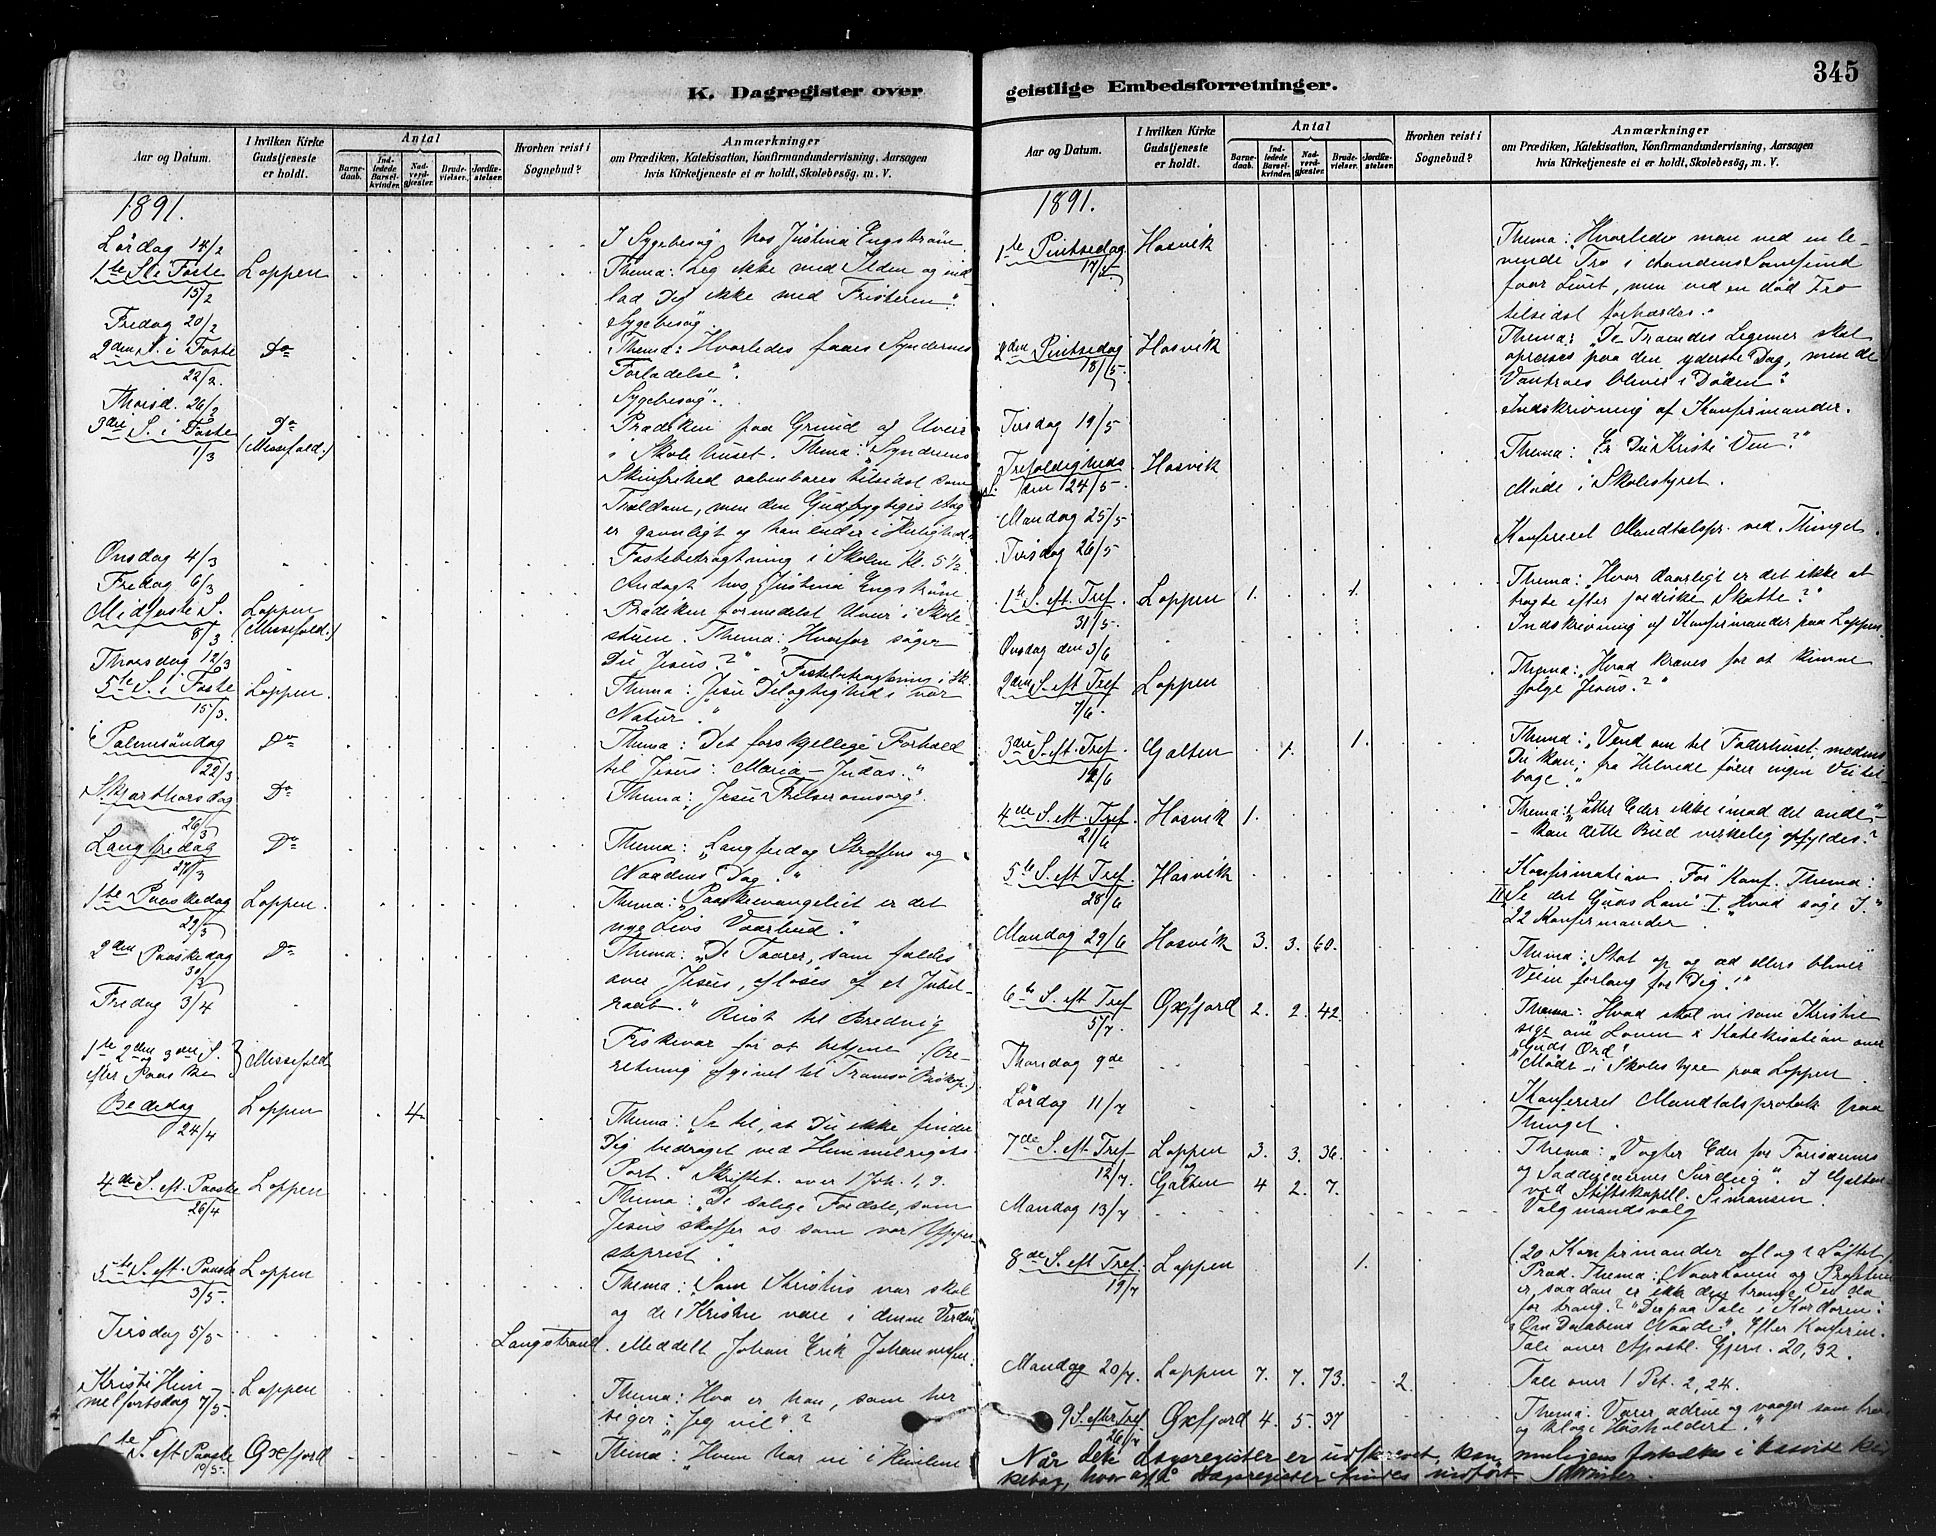 K. Dagregister over
geistlige Embedsforretninger.
345
Aar og Datum.
I hvilken Kirke Gudstjeneste er holdt.
Antal
Barnedaab.
Indledede Barselkvinder.
Nadverdgjester.
Brudevielser.
Jordfæstelser.
Hvorhen reist i Sognebud?
Anmærkninger
om Prædiken, Katekisation, Konfirmandundervisning, Aarsagen
hvis Kirketjeneste ei er holdt, Skolebesøg, m. V.
1891.
Lördag 14/2 I Sygebesøg hos Justina Engström
1te S. i Faste Loppen Thema: Leg ikke med Ilden og ind-
15/2 lad Dig ikke med Fristeren".
Fredag 20/2 Sygebesøg.
2den S. i Faste Do Thema: Hvorledes faaes Syndernes
22/2. Forladelse".
Thorsd. 26/2 Sygebesøg".
3die S. i Faste Do Prædiken paa Grund af Uveir
1/3 (Messefald.) i Skolehuset. Thema: "Syndens
Skinfrihed aabenbares tilsidst som
Trældom, men den Gudfrygtiges Aag
er gavnligt og han ender i Herlighed."
Onsdag 4/3 Fastebetragtning i Skolen Kl. 5 1/2.
Fredag 6/3 Andagt hos Justina Engström
Midfaste S. Loppen Prædiken formedelst Uveir i Skole-
8/3 (Messefald.) stuen. Thema: "Hvorfor søger
Thorsdag 12/3 Du Jesus?" Fastebetragtning i Sk.
5te S. i Faste Loppen. Thema: Jesu Delagtighed i vor
15/3. Natur."
Palmesöndag Do Thema: Det forskjellige Forhold
22/3 til Jesus: Maria - Judas."
Skjærthorsdag Do Thema: "Jesu Frelseromsorg".
26/3
Langfredag Do Thema: "Langfredag Straffens og
27/3 Naadens Dag."
1te Paaskedag Loppen. Thema: "Paaskeevangeliet er det
29/3 nye Livs Vaarbud."
2den Paaskedag Do Thema: "De Taarer, som faldes
30/3 over Jesus, afløses af et Jubel-
Fredag 3/4 raab." Reist til Bredvig
Fiskevær for at betjene (Be-
1te 2den og 3die S. efter Paaske } Messefald retning afgivet til Tromsø Biskop.)
Bededag Loppen 4. Thema: "Se til, at Du ikke finder
24/4 Dig bedraget ved Himmelrigets
Port." Skriftet. over 1 Joh. 1, 9.
4de S. eft. Paaske Loppen Thema: "De salige Fordele, som
26/4 Jesus skaffer os som vor Ypper-
stepræst".
5te S. eft. Paaske Loppen Thema: Som Kristus var skal
3/5. og de Kristne være i denne Verden
Tirsdag 5/5 Langstrand. Meddelt Johan Erik Johannessen.
Kristi Him- Loppen Thema: Hva er han, som her
melfartsdag 7/5. siger: "Jeg vil"?
S. eft Paaske Øxfjord Thema: "Hvem har vi i Himlene
10/5.
1891.
1te Pintsedag Hasvik Thema: "Hvorledes man ved en le-
17/5 vende Tro i Aandens Samfund
faar Livet, men ved en død Tro
tilsidst forhærdes."
2den Pintsedag Hasvik Thema: "De Troendes Legemer skal
18/5. opreises paa den yderste Dag, men de
Vantroes bliver i Døden."
Tirsdag 19/5 Indskrivning af Konfirmander.
Trefoldigheds Hasvik Thema: "Er Du Kristi Ven?"
S. den 24/5.
Mandag 25/5 Møde i Skolestyret.
Tirsdag 26/5 Konfereret Mandtalspr. ved Thinget.
1te S. eft. Tref. Loppen 1. 1. Thema: "Hvor daarligt er det ikke at
31/5. tragte efter jordiske Skatte?"
Onsdag den 3/6 Indskrivning af Konfirmander paa Loppen.
2den S. eft Tref Loppen Thema: "Hvad kræves for at kunne
7/6. følge Jesus?"
3die S. eft. Tref. Galten 1. 1. Thema: "Vend om til Faderhuset, medens
14/6 Du kan; fra Helvede fører ingen Vei til-
bage."
4de S. eft. Tref. Hasvik 1. Thema: "Sætter Eder ikke imod det onde"
21/6 - kan dette Bud virkelig opfyldes?
5te S. eft Tref. Hasvik Konfirmation. Før Konf. Thema:
28/6 II Se det Guds Lam" I. "Hvad søge I."
22 Konfirmander.
Mandag 29/6 Hasvik 3. 3. 60. Thema: "Stat op og æd ellers bliver
Veien forlang for Dig!"
6te S. eft Tref Øxfjord 2. 2. 42. Thema: Hvad skal vi som Kristne
5/7. sige om" Loven & Katekisation over
Guds Ord!
Thorsdag 9de Møde i Skolestyre paa Loppen.
Lördag 11/7 Konfereret Mandtalsprotok paa
Thinget.
7de S. eft Tref Loppen 3. 3. 36. Thema: "Vogter Eder for Farisæernes
12/7. og Galten 4 2. 7. og Saddusæernes Surdeig". I Galten
ved Stiftskapell. Simonsen
Mandag 13/7 Valgmandsvalg
8de S. eft Tref. Loppen 1. (20 Konfirmander aflagt Løftet)
19/7 Præd. Thema: "Naar Loven og Profeterne
er, saadan er ikk den trange Vei da
for trang?" Derpaa Tale i Kordøren:
"Om Daabens Naade". Efter Konfirm.
Tale over Apostl. Gjern. 20, 32.
Mandag 20/7. Loppen 7. 7. 73. 2. Tale over 1 Pet. 2, 24.
9 S. efter Tref Øxfjord 4. 5. 37 Thema: Værer ædrue og vaager som tro
26/7 og kloge Husholdere."
Når dette dagsregister er udskrevet, kan muligens forsættes i Hasvik kir-
kebog, hvor også dagsregister findes indført.